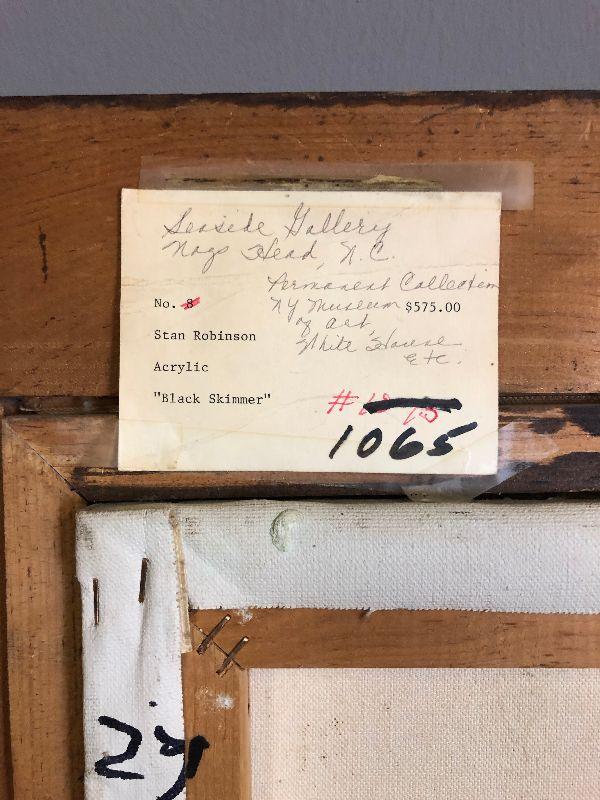 Seaside Gallery
Nags Head, N.C.
Permanent Collection
No. 8 NY Museum $575.00
of art,
Stan Robinson
White House
Etc.
Acrylic
"Black Skimmer"
#
1065